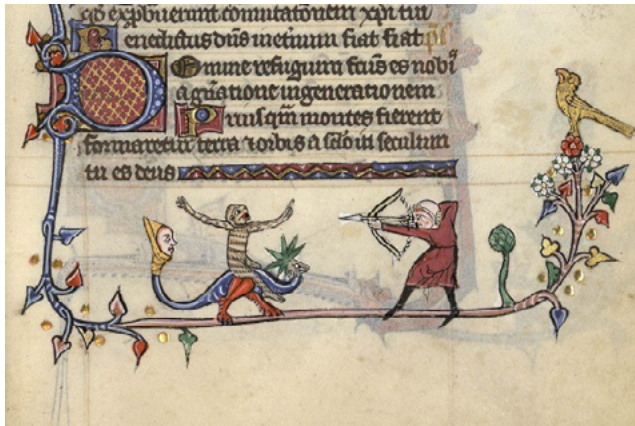 qd expbuerunt comutatonem xpi tui
Benedictus dns inetnum fiat fiat
Domine refugium fcus es nobis
a gnatione in generationem
Priusqm montes fierent
formaretur terra ⁊ orbis a sclo in seculum
tu es deus